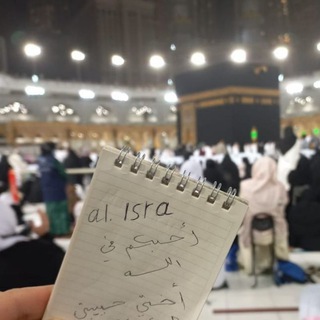 al. Isra
أحبكم في
الله
أختي حبيبتي